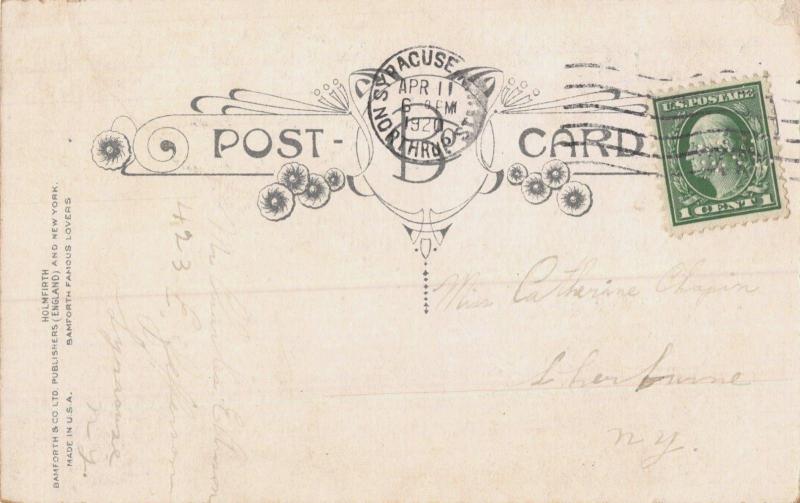 POST- B CARD
SYRACUSE
APR 11
6 PM
1920
U.S. POSTAGE
1 CENT 1
Miss Catherine Chapin
Sherburne
N.Y.
423 E. Jefferson
Syracuse
N.Y.
HOLMFIRTH
BAMFORTH & CO. LTD. PUBLISHERS (ENGLAND) AND NEW YORK.
MADE IN U.S.A. BAMFORTH FAMOUS LOVERS